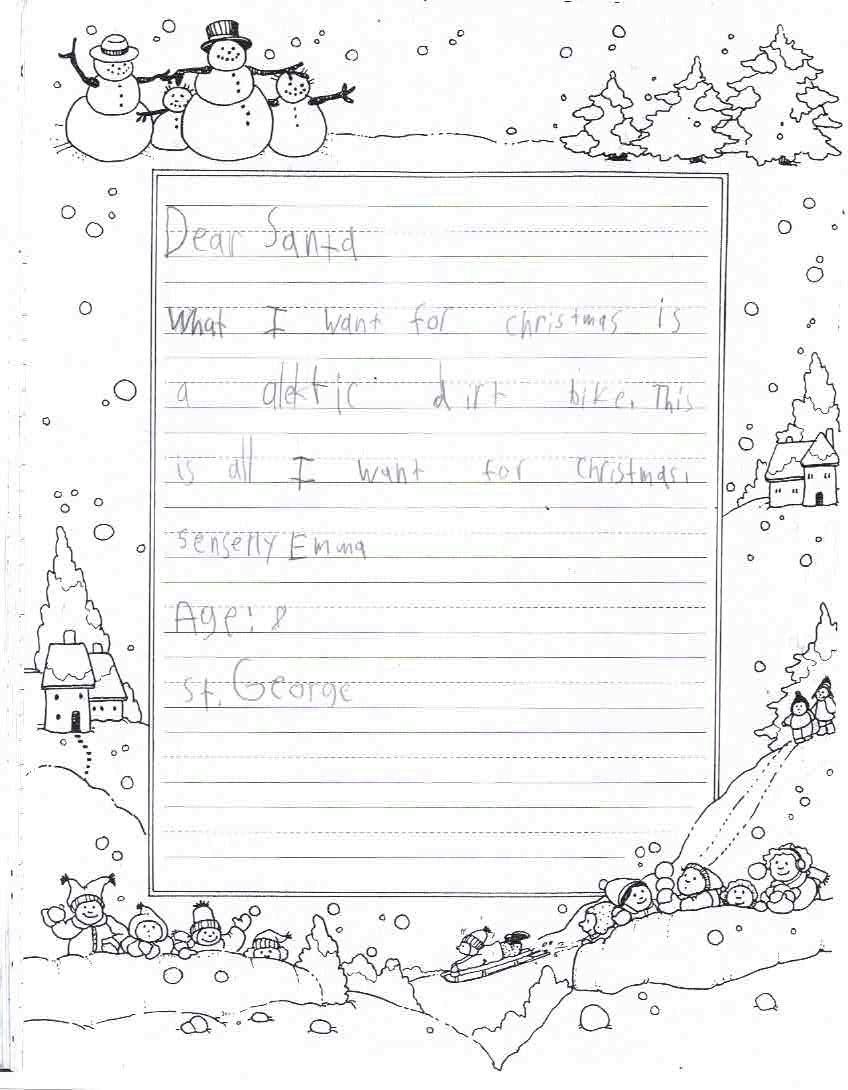 Dear Santa
What I want for christmas is
a alektic dirt bike. This
is all I want for Christmas.
senserly Emma
Age: 8
St. George